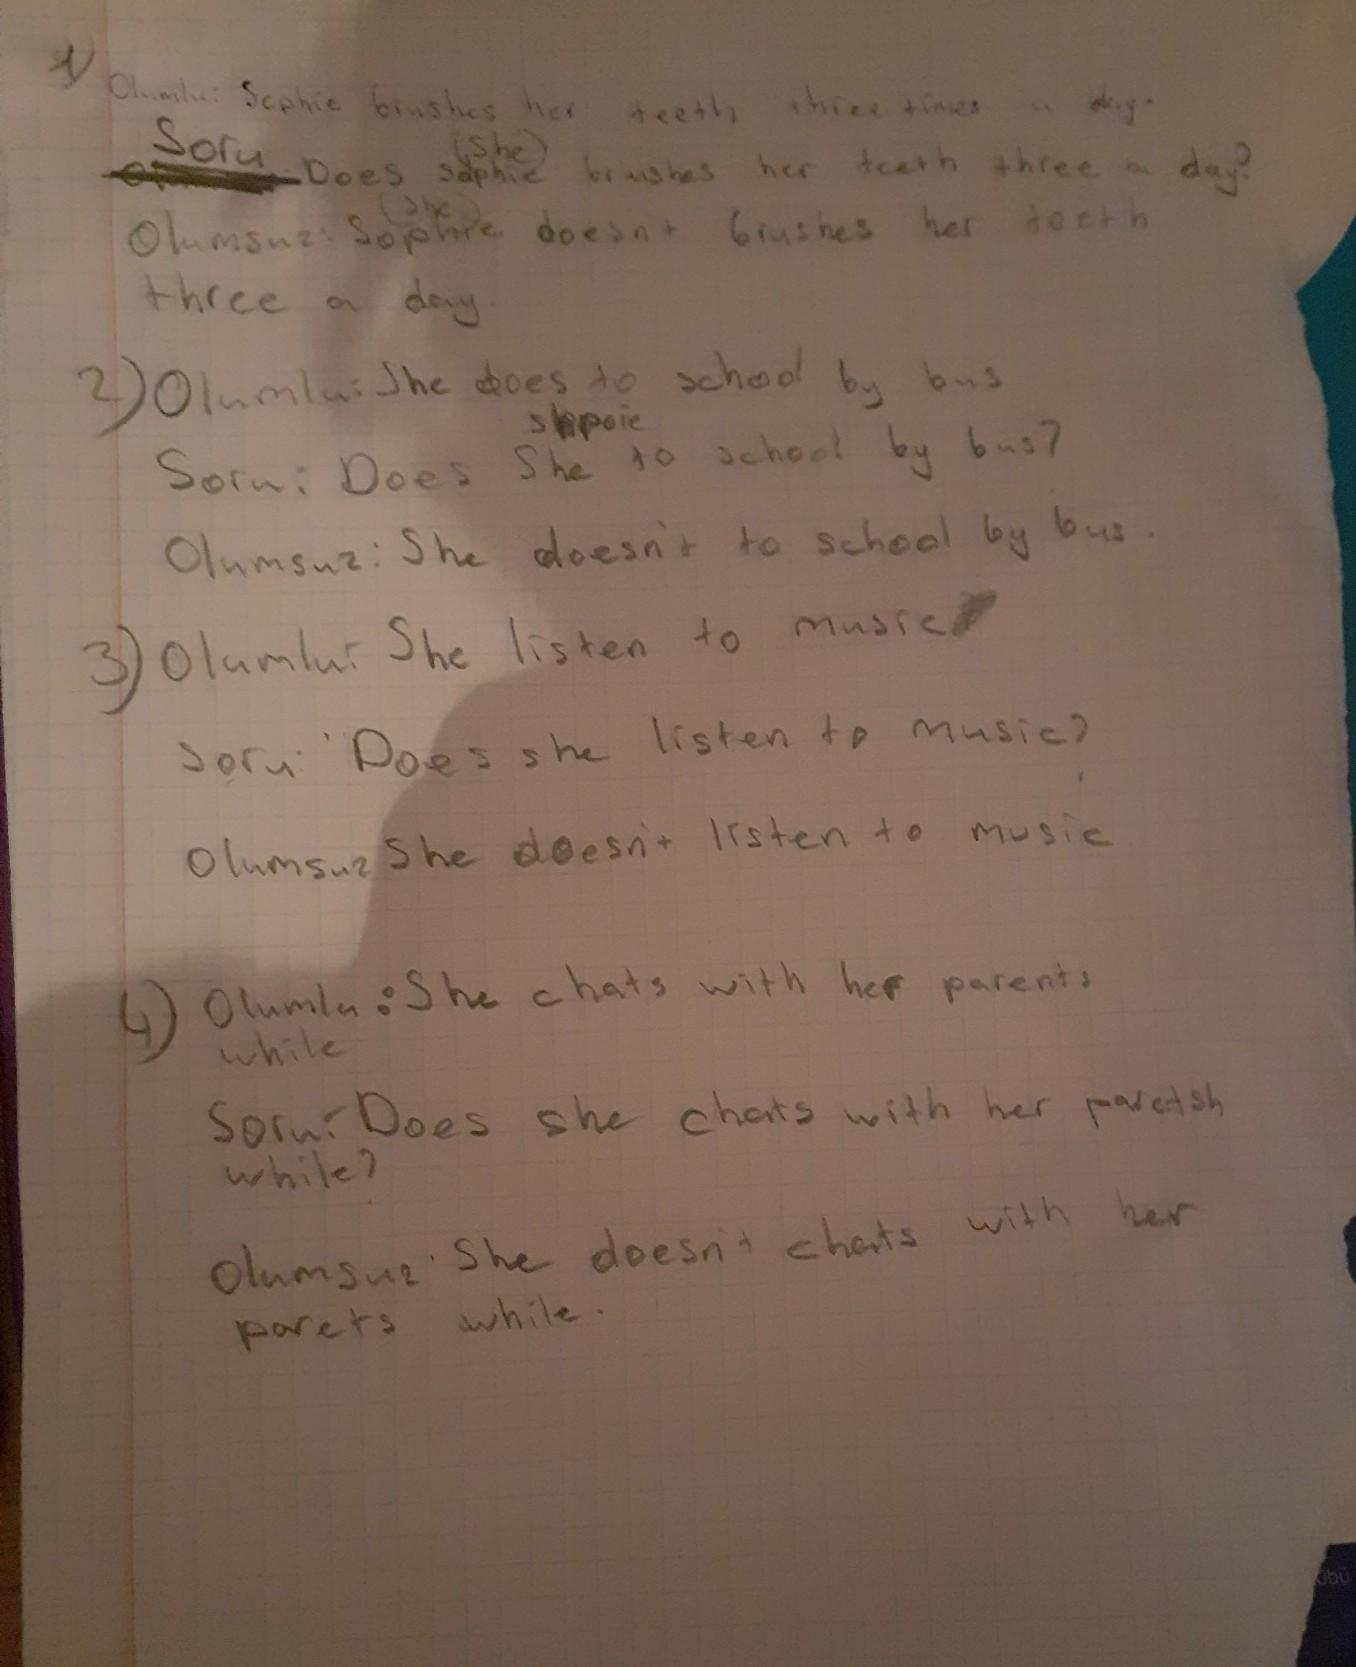 1) Olumlu: Sophie brushes her teeth three times a day.
Soru Does sophie (She) brushes her teeth three a day?
Olumsuz: Sophie (she) doesnt brushes her teeth
three a day.
2) Olumlu: She does to school by bus
Soru: Does She to school by bus?
Olumsuz: She doesn't to school by bus.
3) Olumlu: She listen to music
Soru: Does she listen to music?
Olumsuz She doesn't listen to music
4) Olumlu: She chats with her parents
while
Soru: Does she chats with her
while?
Olumsuz: She doesn't chats with her
parets while.